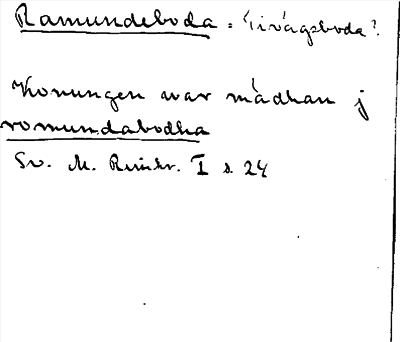 Ramundeboda = 'Tivägsboda'?
Konungen war mädhan j
romundabodha
Sv. M. Rimkr. I s. 24